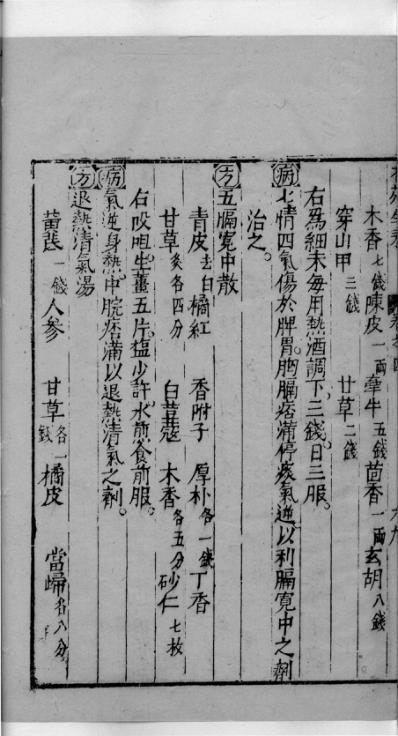 木香七錢陳皮一兩牽牛五錢茴香一兩玄胡八錢
穿山甲三錢 甘草二錢
右爲細末每用熱酒調下三錢。日三服。
病 七情四氣傷於脾胃。胸膈痞滿停痰氣逆以利膈寬中之劑
治之。
方 五膈寬中散
青皮去白 橘紅 香附子 厚朴各一錢 丁香
甘草炙各四分 白荳蔻 木香各五分 砂仁七枚
右㕮咀。生薑五片。塩少許。水煎食前服。
病 氣逆身熱。中脘痞滿以退熱清氣之劑。
方 退熱清氣湯
黃芪一錢 人參 甘草各一錢 橘皮 當歸各八分